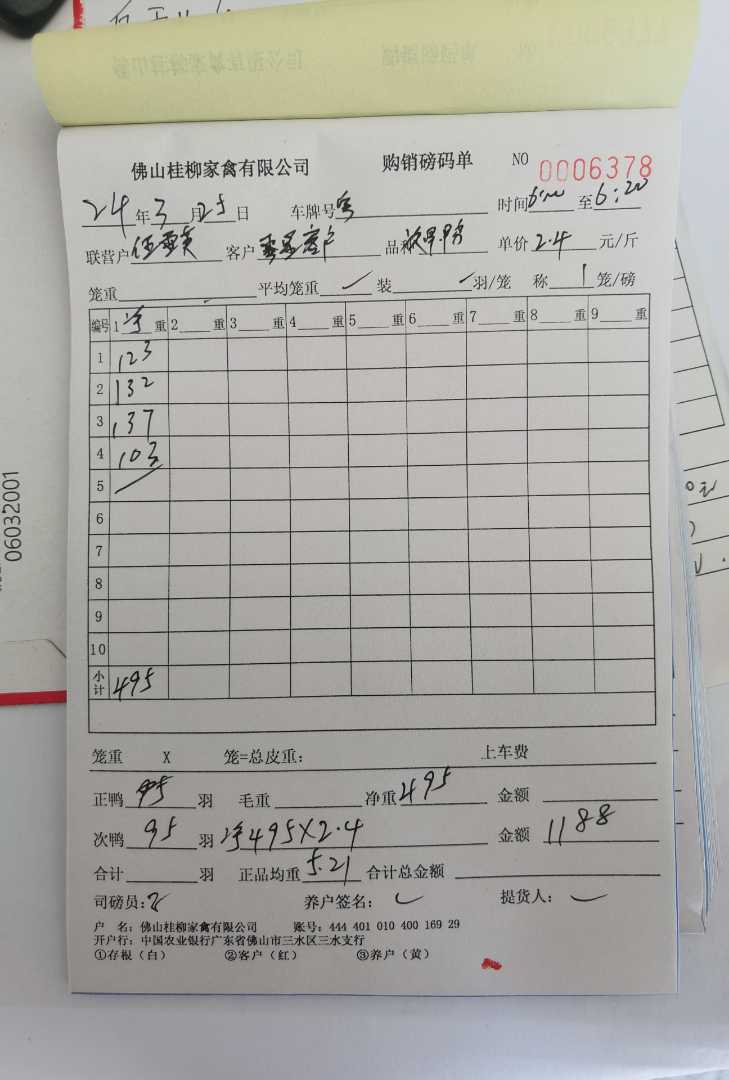 佛山桂柳家禽有限公司 购销磅码单 NO 0006378
24年3月25日 车牌号粤 时间6:00至6:20
联营户 客户 品种 单价2.4元/斤
笼重 平均笼重 装 羽/笼 称1笼/磅
编号 1净重 2重 3重 4重 5重 6重 7重 8重 9重
1 123
2 132
3 137
4 103
5
6
7
8
9
10
小计 495
笼重 X 笼=总皮重： 上车费
正鸭 羽 毛重 净重495 金额
次鸭 95 羽 净495X2.4 金额 1188
合计 羽 正品均重5.21 合计总金额
司磅员： 养户签名： 提货人：
户 名：佛山桂柳家禽有限公司 账号：444 401 010 400 169 29
开户行：中国农业银行广东省佛山市三水区三水支行
①存根（白） ②客户（红） ③养户（黄）
06032001